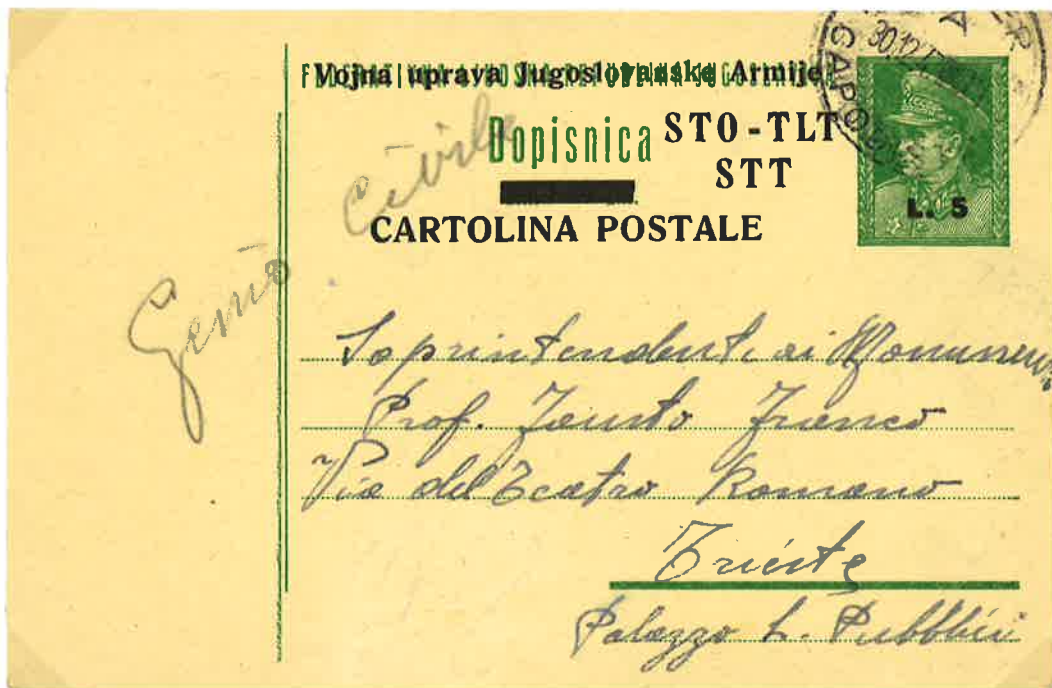 Vojna uprava Jugoslovanske Armije
Dopisnica STO-TLT
STT
CARTOLINA POSTALE
L. 5
30.12
CAPO
Genio Civile
Soprintendente ai Monumenti
Prof. Fausto Franco
Via del Teatro Romano
Trieste
Palazzo L. Pubblici